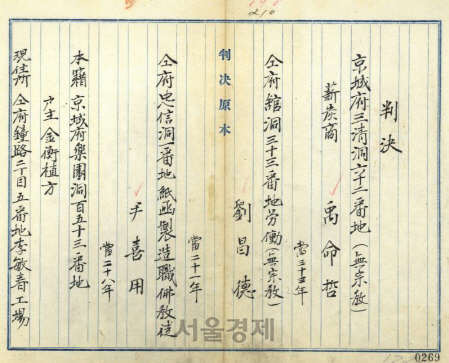 210
判決
京城府三淸洞六十二番地(無宗敎)
薪炭商 禹命哲
當三十三年
仝府舘洞三十三番地労働(無宗敎)
劉昌德
判決原本
當二十一年
仝府忠信洞一番地紙凾製造職佛敎徒
尹喜用
當二十八年
本籍 京城府樂園洞百五十三番地
戶主 金衡植方
現住所 仝府鐘路二丁目五番地李敏春工場
서울경제
0269